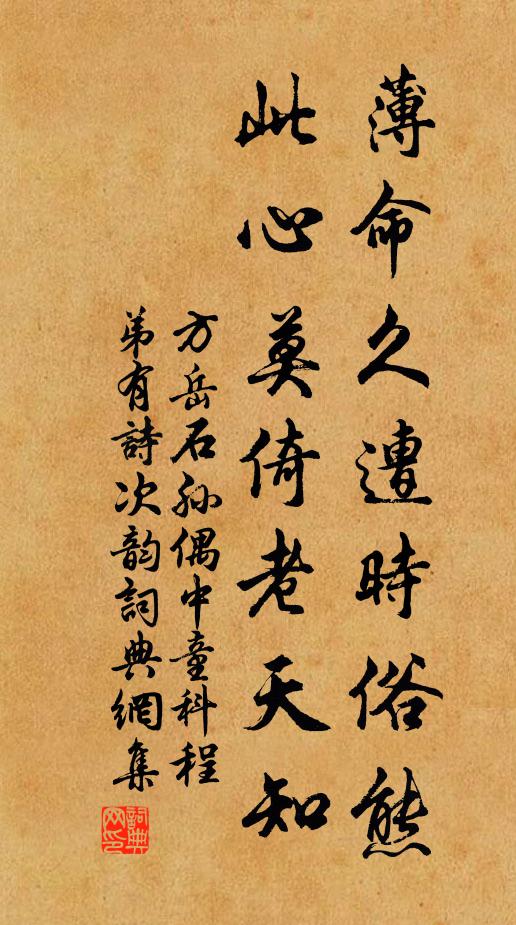 薄命久遭時俗態
此心莫倚老天知
方岳石孙偶中童科程
弟有詩次韵詞典網集
詞典网印